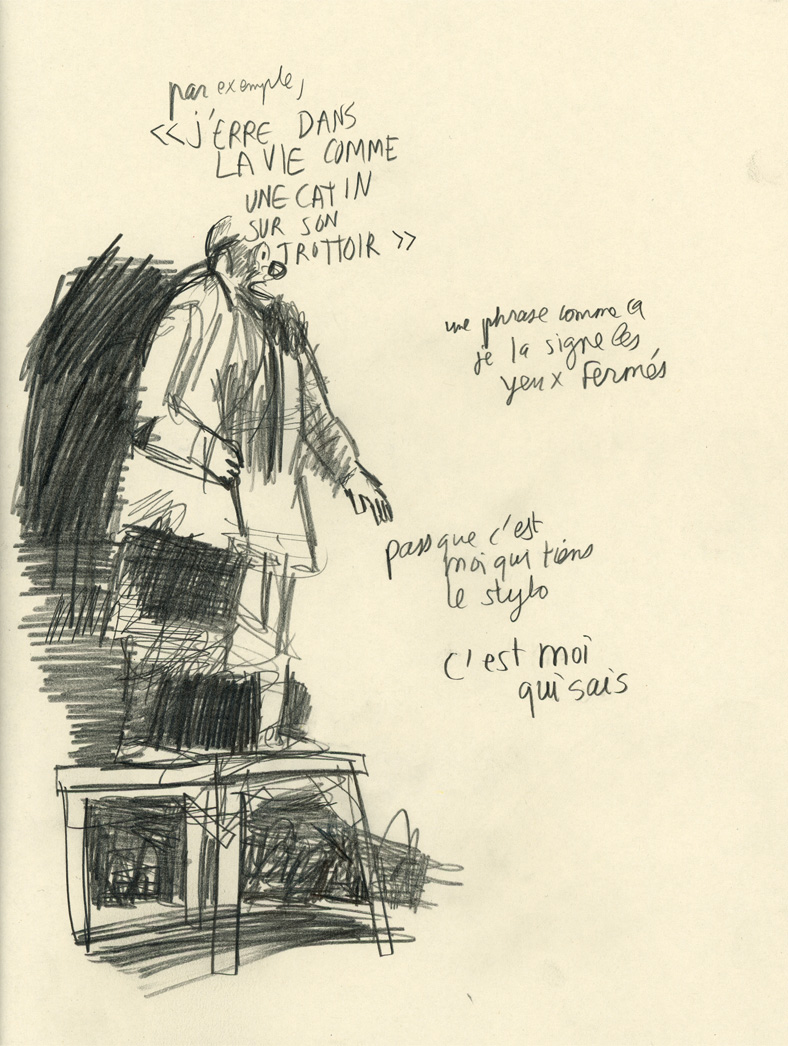 par exemple,
<< J'ERRE DANS
LA VIE COMME
UNE CATIN
SUR SON
TROTTOIR >>
une phrase comme ça
je la signe les
yeux fermés
passque c'est
moi qui tiens
le stylo
c'est moi
qui sais